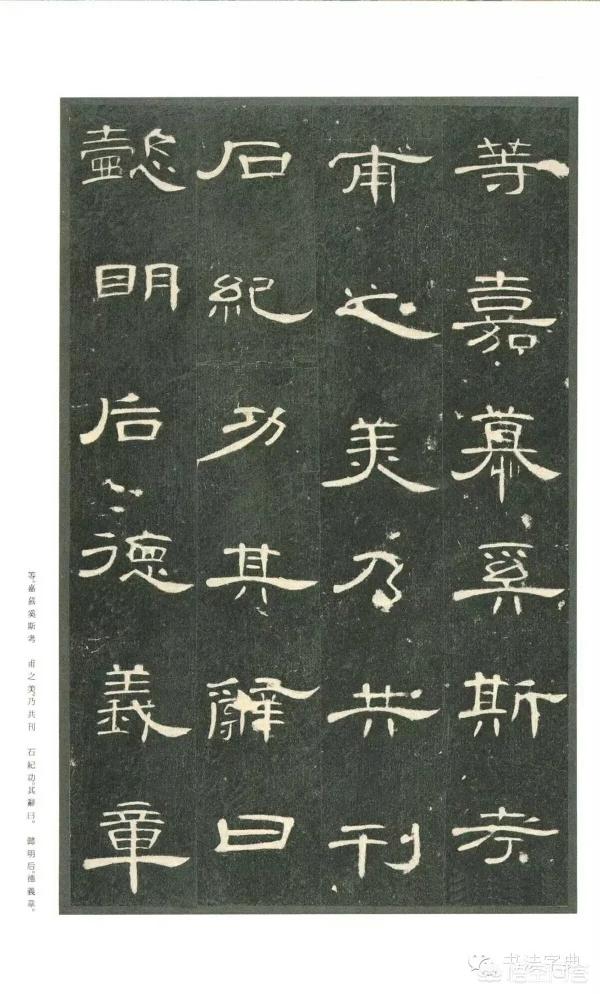 等嘉慕奚斯考
甫之美乃共刊
石紀功其辭曰
懿明后德義章
等、嘉慕奚斯考　甫之美、乃共刊　石紀功。其辭曰。　懿明后。德義章。
书法字典
悟空问答